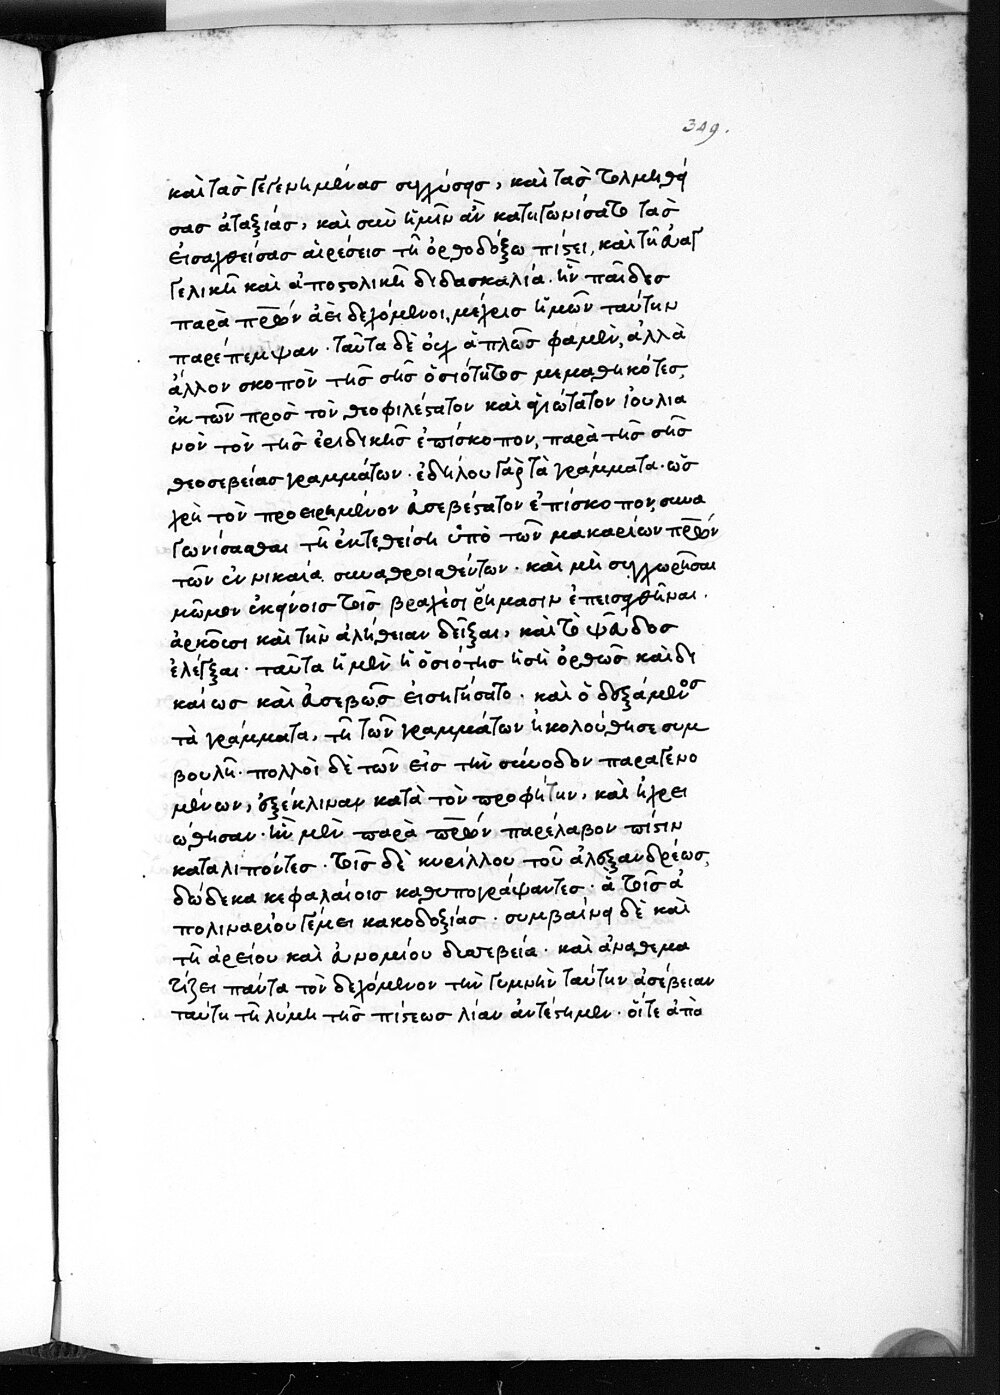 349.
καὶ τὰσ γεγενημένασ συγχύσεισ, καὶ τὰσ τολμηθεί
σασ ἀταξίάσ, καὶ σὺν ἡμῖν ἂν κατηγωνίσατο τὰσ
ἐισαχθείσας ἁιρέσεισ τῆ ὀρθοδόξω πίστει, καὶ τῆ ἐυαγ
γελικῆ καὶ ἀποστολικῆ διδασκαλία. ἣν παῖδεσ
παρὰ πρων ἀεὶ δεχόμενοι, μέχρισ ἡμῶν ταύτην
παρέπεμψαν. ταῦτα δὲ οὐχ ἁπλῶσ φαμὲν, ἀλλὰ
ἄλλον σκοπὸν τῆσ σῆσ ὁσιότητοσ μεμαθηκότεσ,
ἐκ τῶν πρὸσ τὸν θεοφιλέστατον καὶ ἁγιώτατον ἰουλια
νὸν τὸν τῆσ ἐριδικῆσ ἐπίσκοπον, παρὰ τῆσ σῆσ
θεοσεβείας γραμμάτων. ἐδήλου γὰρ τὰ γράμματα. ὡσ
χρὴ τὸν προειρημένον ἐυσεβέστατον ἐπίσκοπον, συνα
γωνίσασθαι τῆ ἐκτεθείση ὑπὸ τῶν μακαρίων πρων
τῶν ἐν νικαία συναθροισθέντων. καὶ μὴ συγχωρῆσαι
μῶμον ἐκείνοισ τοῖσ βραχέσι ῥήμασιν ἐπεισαχθῆναι.
ἀρκοῦσι καὶ τὴν ἀλήθειαν δεῖξαι, καὶ τὸ ψεῦδοσ
ἐλέγξαι. ταῦτα ἡ μὲν ἡ ὁσιότησ ἡ σὴ ὀρθῶσ καὶ δι
καίωσ καὶ ἐυσεβῶσ ἐισηγήσατο. καὶ ὁ δεξάμενοσ
τὰ γράμματα, τῆ τῶν γραμμάτων ἠκολούθησε συμ
βουλῆ. πολλοὶ δὲ τῶν ἐισ τὴν σύνοδον παραγενο
μένων, ἐξέκλιναν κατὰ τὸν προφήτην, καὶ ἠχρει
ώθησαν. ἣν μὲν παρὰ πρων παρέλαβον πίστιν
καταλιπόντεσ. τοῖσ δὲ κυρίλλου τοῦ ἀλεξανδρέωσ,
δώδεκα κεφαλαίοισ καθυπογράψαντεσ. ἃ τοῖσ ἀ
πολιναρίου γέμει κακοδοξίασ. συμβαίνει δὲ καὶ
τῆ ἀρείου καὶ ἐυνομίου δυσσεβεία. καὶ ἀναθεμα
τίζει πάντα τὸν δεχόμενον τὴν γυμνὴν ταύτην ἀσέβειαν
ταύτη τῆ λύμη τῆσ πίστεωσ λίαν ἀντέστημεν. ὅι τε ἀπὸ